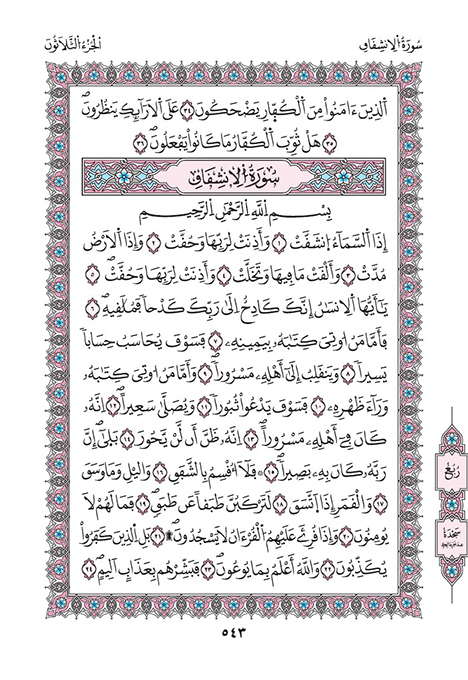 سُورَةُ الِانشِقَاقِ
الجُزْءُ الثَّلَاثُونَ
اَلذِينَ ءَامَنُواْ مِنَ اَلْكُفَّارِ يَضْحَكُونَ ٣٤ عَلَى اَلَارَآئِكِ يَنظُرُونَۖ
٣٥ هَلْ ثُوِّبَ اَلْكُفَّارُ مَا كَانُواْ يَفْعَلُونَۖ ٣٦
سُورَةُ الِانشِقَاقِ
بِسْمِ اِللَّهِ اِلرَّحْمَٰنِ اِلرَّحِيمِ
إِذَا اَلسَّمَآءُ اُ۪نشَقَّتْ ١ وَأَذِنَتْ لِرَبِّهَا وَحُقَّتْ ٢ وَإِذَا اَلَارْضُ
مُدَّتْ ٣ وَأَلْقَتْ مَا فِيهَا وَتَخَلَّتْ ٤ وَأَذِنَتْ لِرَبِّهَا وَحُقَّتْۖ ٥
يَٰٓأَيُّهَا اَلِانسَٰنُ إِنَّكَ كَادِحٌ اِلَىٰ رَبِّكَ كَدْحاً فَمُلَٰقِيهِۖ ٦
فَأَمَّا مَنُ اوتِيَ كِتَٰبَهُۥ بِيَمِينِهِۦ ٧ فَسَوْفَ يُحَاسَبُ حِسَاباً
يَسِيراً ٨ وَيَنقَلِبُ إِلَىٰٓ أَهْلِهِۦ مَسْرُوراًۖ ٩ وَأَمَّا مَنُ اوتِيَ كِتَٰبَهُۥ
وَرَآءَ ظَهْرِهِۦ ١٠ فَسَوْفَ يَدْعُواْ ثُبُوراً ١١ وَيُصَلَّىٰ سَعِيراًۖ ١٢ اِنَّهُۥ
كَانَ فِےٓ أَهْلِهِۦ مَسْرُوراًۖ ١٣ اِنَّهُۥ ظَنَّ أَن لَّنْ يَّحُورَۖ ١٤ بَلَىٰٓۖ إِنَّ
رَبَّهُۥ كَانَ بِهِۦ بَصِيراًۖ ١٥ فَلَآ أُقْسِمُ بِالشَّفَقِ ١٦ وَاليْلِ وَمَا وَسَقَ
١٧ وَالْقَمَرِ إِذَا اَ۪تَّسَقَ ١٨ لَتَرْكَبُنَّ طَبَقاً عَن طَبَقٖۖ ١٩ فَمَا لَهُمْ لَا
يُومِنُونَ ٢٠ وَإِذَا قُرِئَ عَلَيْهِمُ اُلْقُرْءَانُ لَا يَسْجُدُونَۖ۩ ٢١ بَلِ اِلذِينَ كَفَرُواْ
يُكَذِّبُونَۖ ٢٢ وَاللَّهُ أَعْلَمُ بِمَا يُوعُونَۖ ٢٣ فَبَشِّرْهُم بِعَذَابٍ اَلِيمٍ ٢٤
رُبُعْ
سَجْدَة
٥٤٣